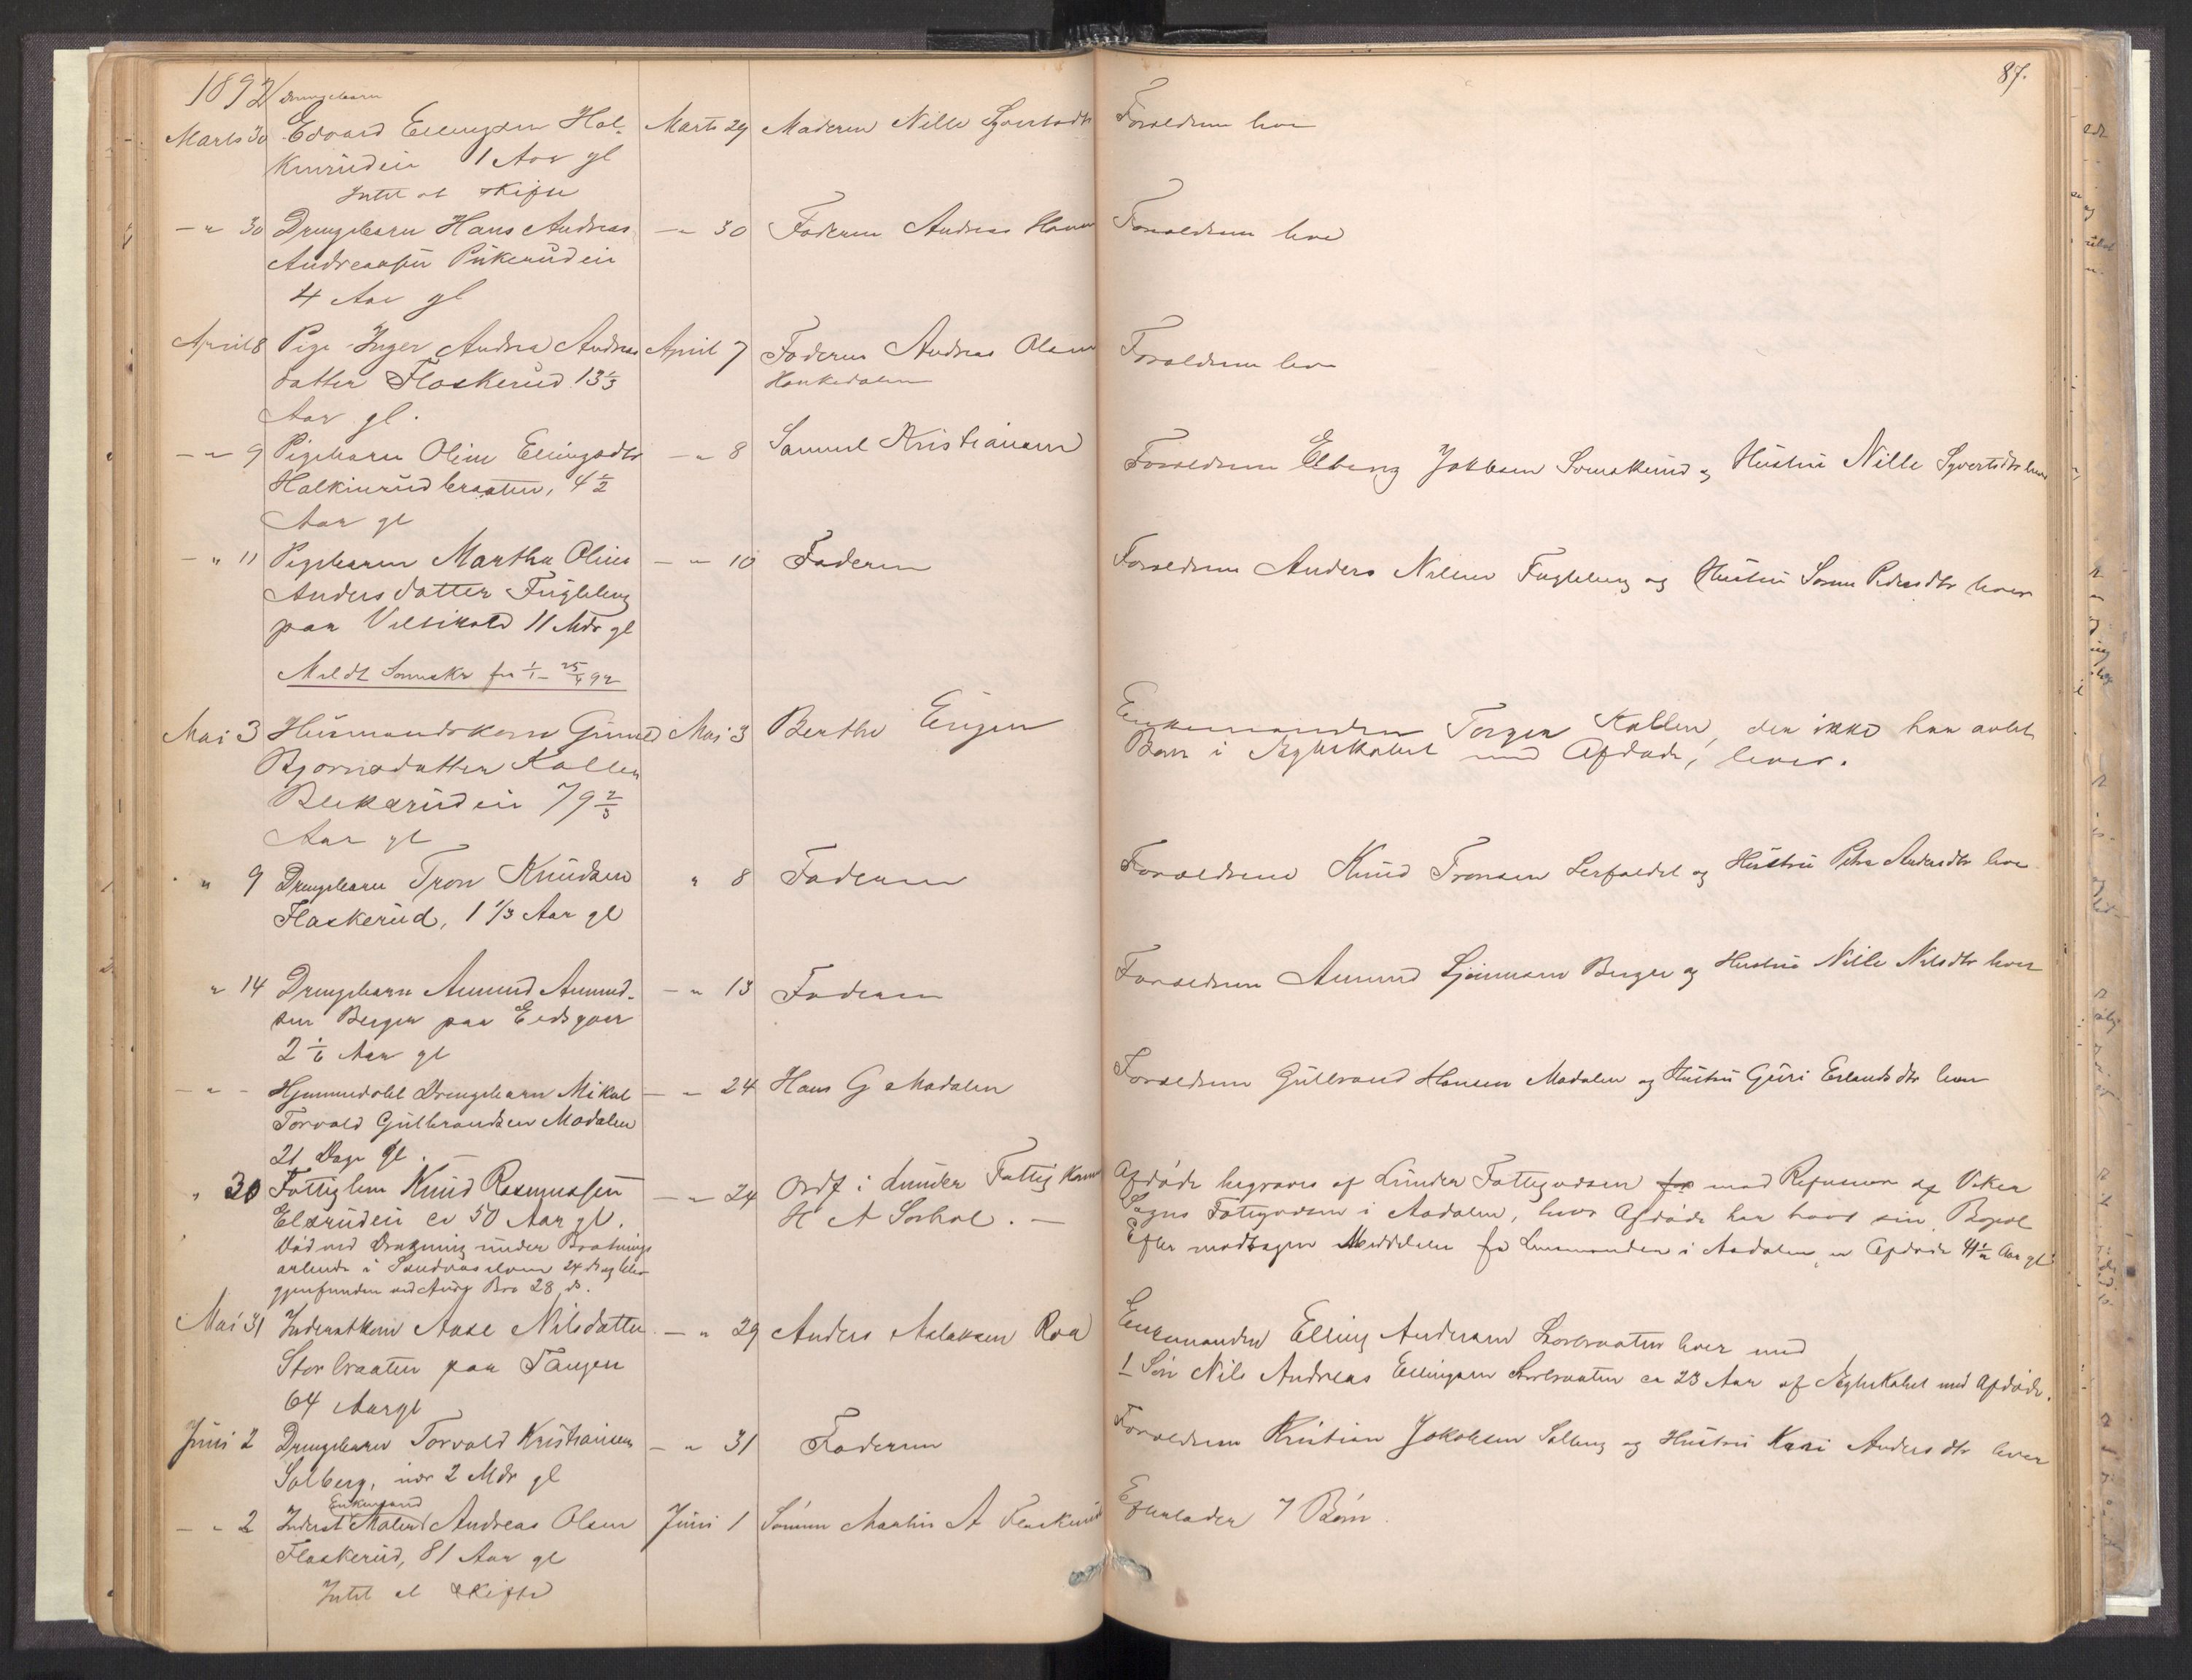 87.
1892
Drengebarn
Marts 30 Edvard Ellingsen Hal- Marts 29 Moderen Nille Syvertsdtr Forældrene leve
kinrudeie 1 Aar gl
Intet at skifte
— " 30 Drengebarn Hans Andreas — " 30 Faderen Andreas Forældrene leve
Andreassen Pukerudeie
4 Aar gl
April 8 Pige Inger Andrea Andreas April 7 Faderen Andreas Olsen Forældrene leve
datter Flaskerud 13 1/3 Haukedalen
Aar gl.
— " 9 Pigebarn Oline Ellingsdtr — " 8 Samuel Kristiansen Forældrene Elling Jakobsen og Hustru Nille Syvertsdtr leve
Halkinrudbraaten, 4 1/2
Aar gl
— " 11 Pigebarn Martha Oline — " 10 Faderen Forældrene Anders Nilsen Fugleberg og Hustru Pedersdtr lever
Andersdatter Fugleberg
paa 11 Mdr gl
Meldt Sorenskr fra 1/1 — 25/4 92
Mai 3 Husmandskone Gunild Mai 3 Berthe Engen Enkemanden Torger Kollen, der ikke har avlet
Bjørnsdatter Kollen Børn i Ægteskabet med Afdøde, lever.
79 2/3
Aar gl
" 9 Drengebarn Tron Knudsen " 8 Faderen Forældrene Knud Tronsen og Hustru Petra Andersdtr leve
Flaskerud, 1 1/3 Aar gl
" 14 Drengebarn Amund Amund- — " 13 Faderen Forældrene Amund Berger og Hustru Nille Nilsdtr lever
sen Berger paa
2 1/6 Aar gl
— " - Hjemmedøbt Drengebarn Mikal — " 24 Hans G Modalen Forældrene Gulbrand Hansen Modalen og Hustru Guri Erlandsdtr lever
Torvald Gulbrandsen Modalen
21 Dage gl.
" 30 Fattiglem Knud Rasmussen — " 24 Ordf i Lunder Fattigkom Afdøde begraves af Lunder Fattigvæsen for med Refusion af Viker
Elsrudeie ca 50 Aar gl. H A Sørhol. — Sogns Fatigvæsen i Aadalen, hvor Afdøde har havt sin Bopæl
Død ved Drukning under Brøtnings Efter modtagen Meddelelse fra Lensmanden i Aadalen er Afdøde 41 1/2 Aar gl
arbeide i 24 ds og blev
gjenfunden ved Bro 28 ds.
Mai 31 Inderstkone Aase Nilsdatter — " 29 Anders Aslaksen Roa Enkemanden Elling Andersen Storbraaten lever med
Storbraaten paa Tangen 1 Søn Nils Andreas Ellingsen Storbraaten ca 23 Aar af Ægteskabet med Afdøde.
64 Aar gl
Juni 2 Drengebarn Torvald Kristiansen — " 31 Faderen Forældrene Kristian Jakobsen Solberg og Hustru Kari Andersdtr lever
Solberg, nær 2 Mdr gl
Enkemand
— " 2 Inderst Maler Andreas Olsen Juni 1 Sønnen Martin A Flaskerud Efterlader 7 Børn.
Flaskerud, 81 Aar gl
Intet at skifte